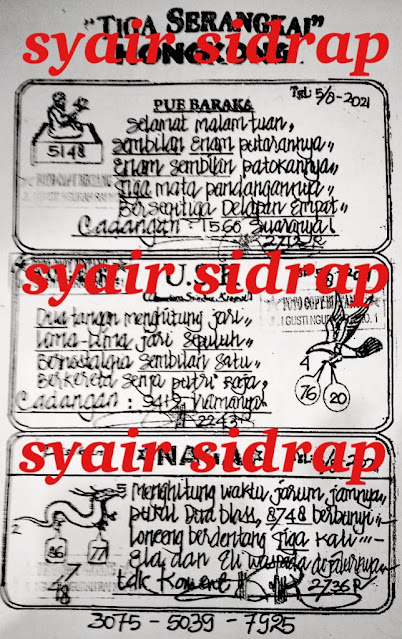 "TIGA SERANGKAI"
HONGKONG
syair sidrap
Tgl: 5/8-2021
PUE BARAKA
5148
Selamat malam tuan,
Sembilan Enam putarannya
Enam Sembilan patokannya
Tiga mata pandangannya
Bersegitiga Delapan Empat
Cadangan : 1560 Suaranya!
2213 R
syair sidrap
Dua tangan menghitung jari
Lima-Lima jari sepuluh
Bernostalgia Sembilan Satu
Berkereta senja putri Raja
Cadangan : 9412 Namanya!
2243
4
76 20
syair sidrap
NAGA
Menghitung waktu jarum jamnya
pukul Dua blass, 8748 berbunyi
Lonceng berdentang Tiga kali
Ela dan Eli waspada
tdk Koment
2736 R
2
86 77
48
3075 - 5039 - 7925